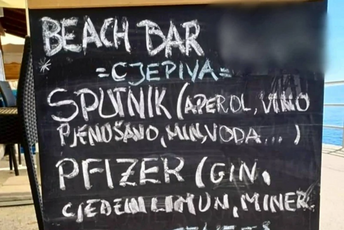 BEACH BAR
* =CJEPIVA=
SPUTNIK (APEROL, VINO
PJENUŠANO, MIN, VODA... )
PFIZER (GIN,
CJEĐENI LIMUN, MINER.